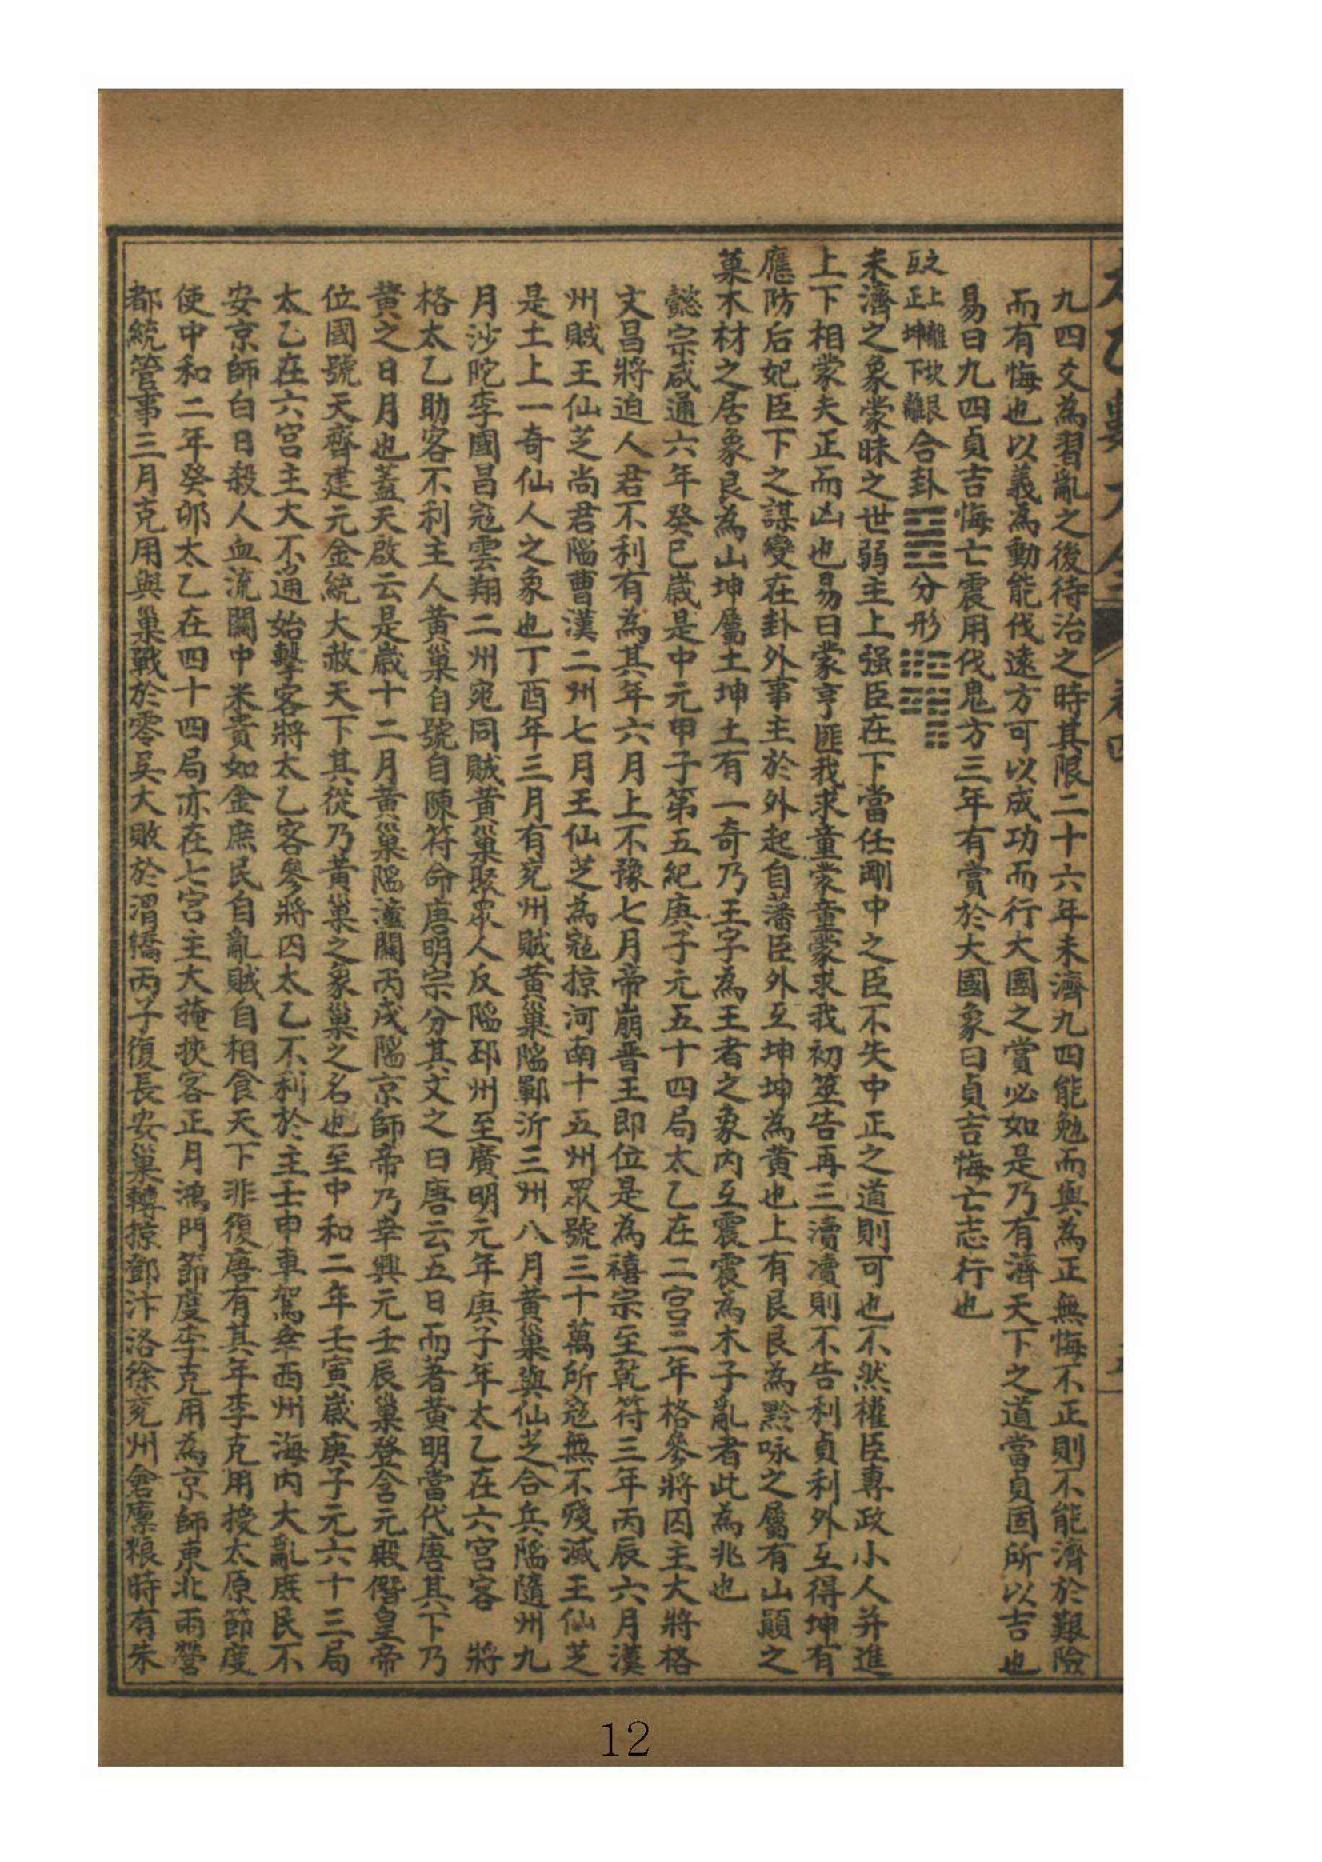 九四爻為習亂之後待治之時其限二十六年未濟九四能勉而與為正無悔不正則不能濟於艱險
而有悔也以義為動能伐遠方可以成功而行大國之賞必如是乃有濟天下之道當貞固所以吉也
易曰九四貞吉悔亡震用伐鬼方三年有賞於大國象曰貞吉悔亡志行也
之上離坎艮
互正坤下離
合卦
分形
未濟之象蒙昧之世弱主上强臣在下當任剛中之臣不失中正之道則可也不然權臣專政小人并進
上下相蒙夫正而凶也易曰蒙亨匪我求童蒙童蒙求我初筮告再三瀆瀆則不告利貞利外互得坤有
應防后妃臣下之謀變在卦外事主於外起自藩臣外互坤坤為黄也上有艮艮為黔咏之屬有山顚之
菓木材之居象艮為山坤屬土坤土有一奇乃王字為王者之象内互震震為木子亂者此為兆也
懿宗咸通六年癸巳歲是中元甲子第五紀庚子元五十四局太乙在二宫三年格參將囚主大將格
文昌將迫人君不利有為其年六月上不豫七月帝崩晋王即位是為禧宗至乾符三年丙辰六月漢
州賊王仙芝尚君陷曹漢二州七月王仙芝為寇掠河南十五州眾號三十萬所寇無不殘滅王仙芝
是土上一奇仙人之象也丁酉年三月有兗州賊黄巢陷鄆沂三州八月黄巢與仙芝合兵陷隨州九
月沙陀李國昌寇雲翔二州宛同賊黄巢聚眾人反陷邳州至廣明元年庚子年太乙在六宫客 將
格太乙助客不利主人黄巢自號自陳符命唐明宗分其文之曰唐云五日而著黄明當代唐其下乃
黄之日月也蓋天啟云是歲十二月黄巢陷潼關丙戌陷京師帝乃幸興元壬辰巢登含元殿僭皇帝
位國號天齊建元金統大赦天下其從乃黄巢之象巢之名也至中和二年壬寅歲庚子元六十三局
太乙在六宫主大不通始擊客將太乙客參將囚太乙不利於主壬申車駕幸西州海内大亂庶民不
安京師白日殺人血流關中米貴如金庶民自亂賊自相食天下非復唐有其年李克用授太原節度
使中和二年癸卯太乙在四十四局亦在七宫主大掩挾客正月鴻門節度李克用為京師東北雨營
都統管事三月克用與巢戰於零吳大敗於渭橋丙子復長安巢轉掠鄧汴洛徐兗州倉廪粮時有朱
12